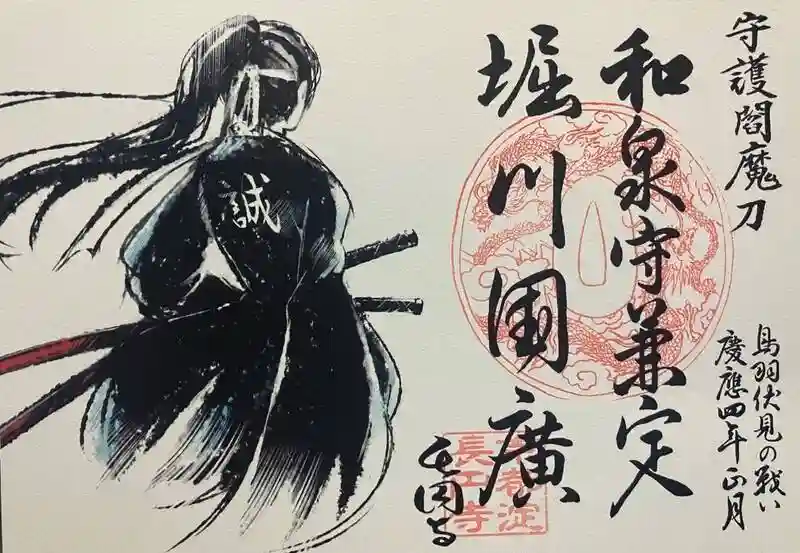 守護閻魔刀
和泉守兼定
堀川国廣
鳥羽伏見の戦い
慶應四年正月
長円寺
誠
京都淀
長円寺